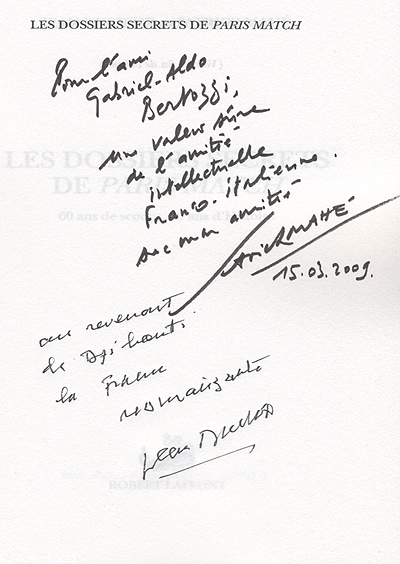 LES DOSSIERS SECRETS DE PARIS MATCH
Pour l'ami
Gabriel-Aldo
Bertozzi,
une valeur sûre
de l'amitié
intellectuelle
Franco-italienne.
avec mon amitié
LES DOSSIERS SECRETS
DE PARIS MATCH
60 ans de
15.03.2009.
au revenant
la France
ROBERT LAFFONT